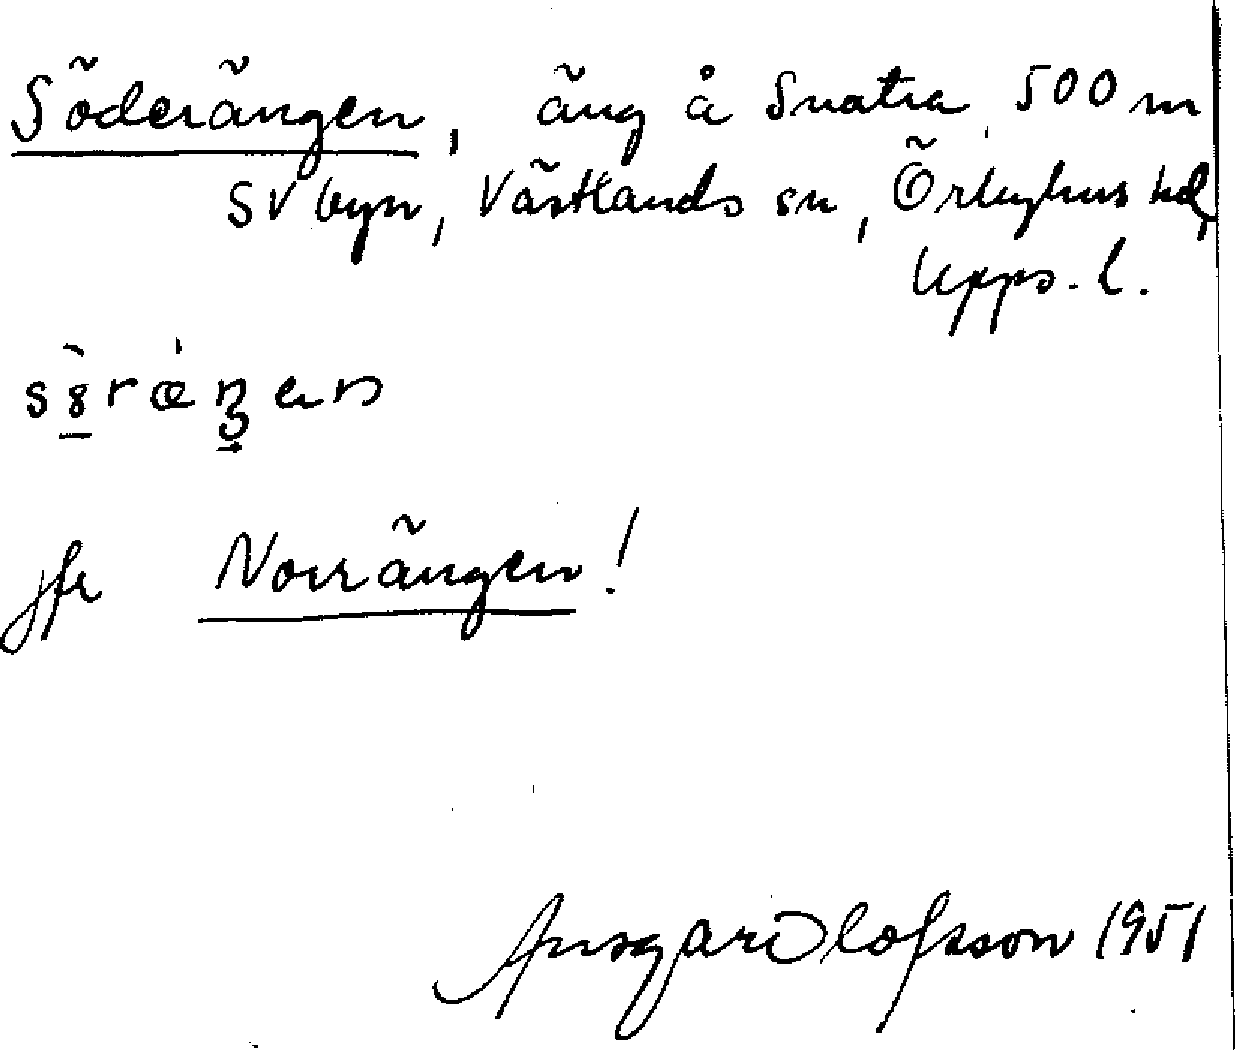 Söderängen, äng å Snatra 500 m
SV byn, Västlands sn, Örbyhus hd,
Upps. l.
jfr Norrängen!
Ansgar Olofsson 1951